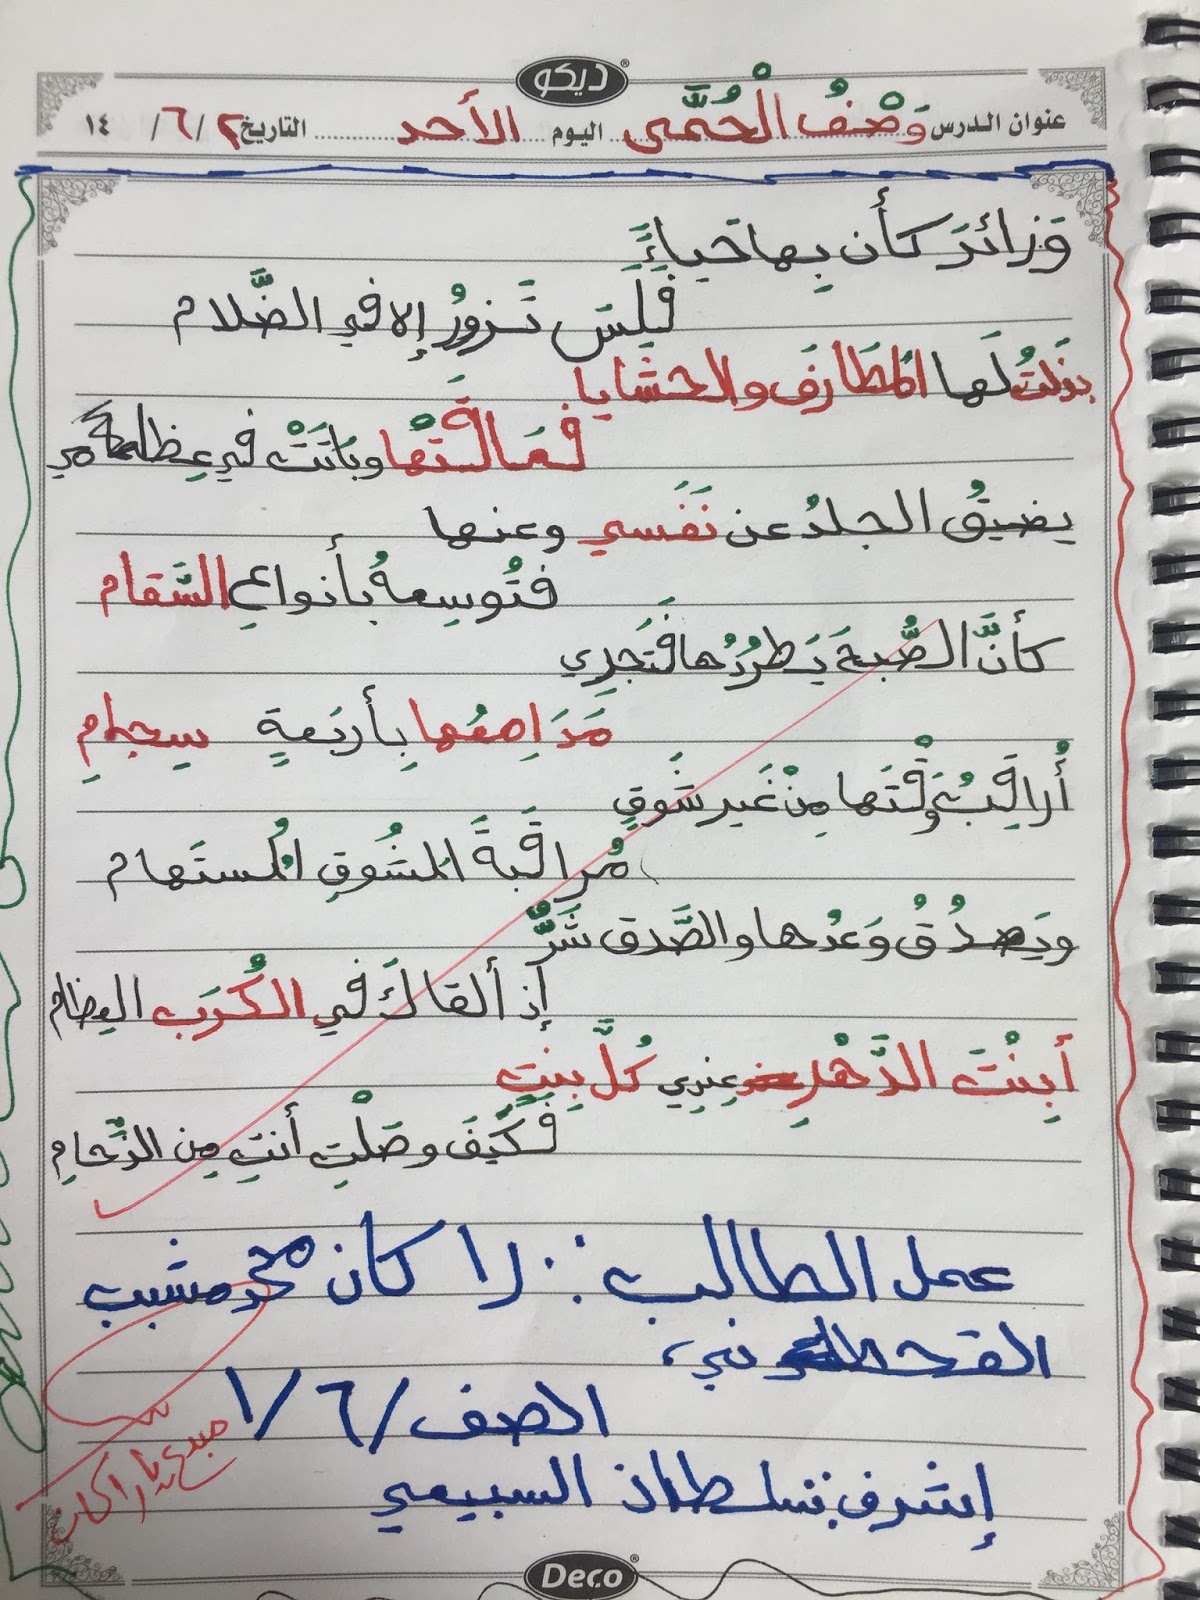 ديكو
عنوان الدرس وَصْفُ الْحُمَّى اليوم الأحد التاريخ ٢/٦/ ١٤
وَزائرَ كأن بِها حَياءً
فَلَيسَ تَزورُ إلا في الضَّلام
بذَلتُ لَها المَطَارَفَ والحَشَايا
فَعَافَتْها وبَاتَتْ في عِظامي
يضيقُ الجلدُ عن نَفَسي وعنها
فتُوسِعهُ بأنواعِ السَّقام
كأنَّ الصُّبحَ يَطرُدُها فَتَجرِي
مَدَامِعُها بِأربَعةٍ سِجامِ
أُراقِبُ وَقْتَها مِنْ غَيرِ شَوقٍ
مُراقَبةَ المَشُوقِ المُستَهام
ويَصدُقُ وَعْدُها والصَّدق شَرٌّ
إذ ألقاكَ في الكُرَبِ العِظام
أبِنْتَ الدَّهْرِ عِندِي كُلَّ بِنتٍ
فكَيَفَ وصَلْتِ أنتِ مِن الزَّحامِ
عمل الطالب: راكان محمد مشبب
القحطاني
الصف/٦/١
إشرف: سلطان السبيعي
مبدع يا راكان
Deco